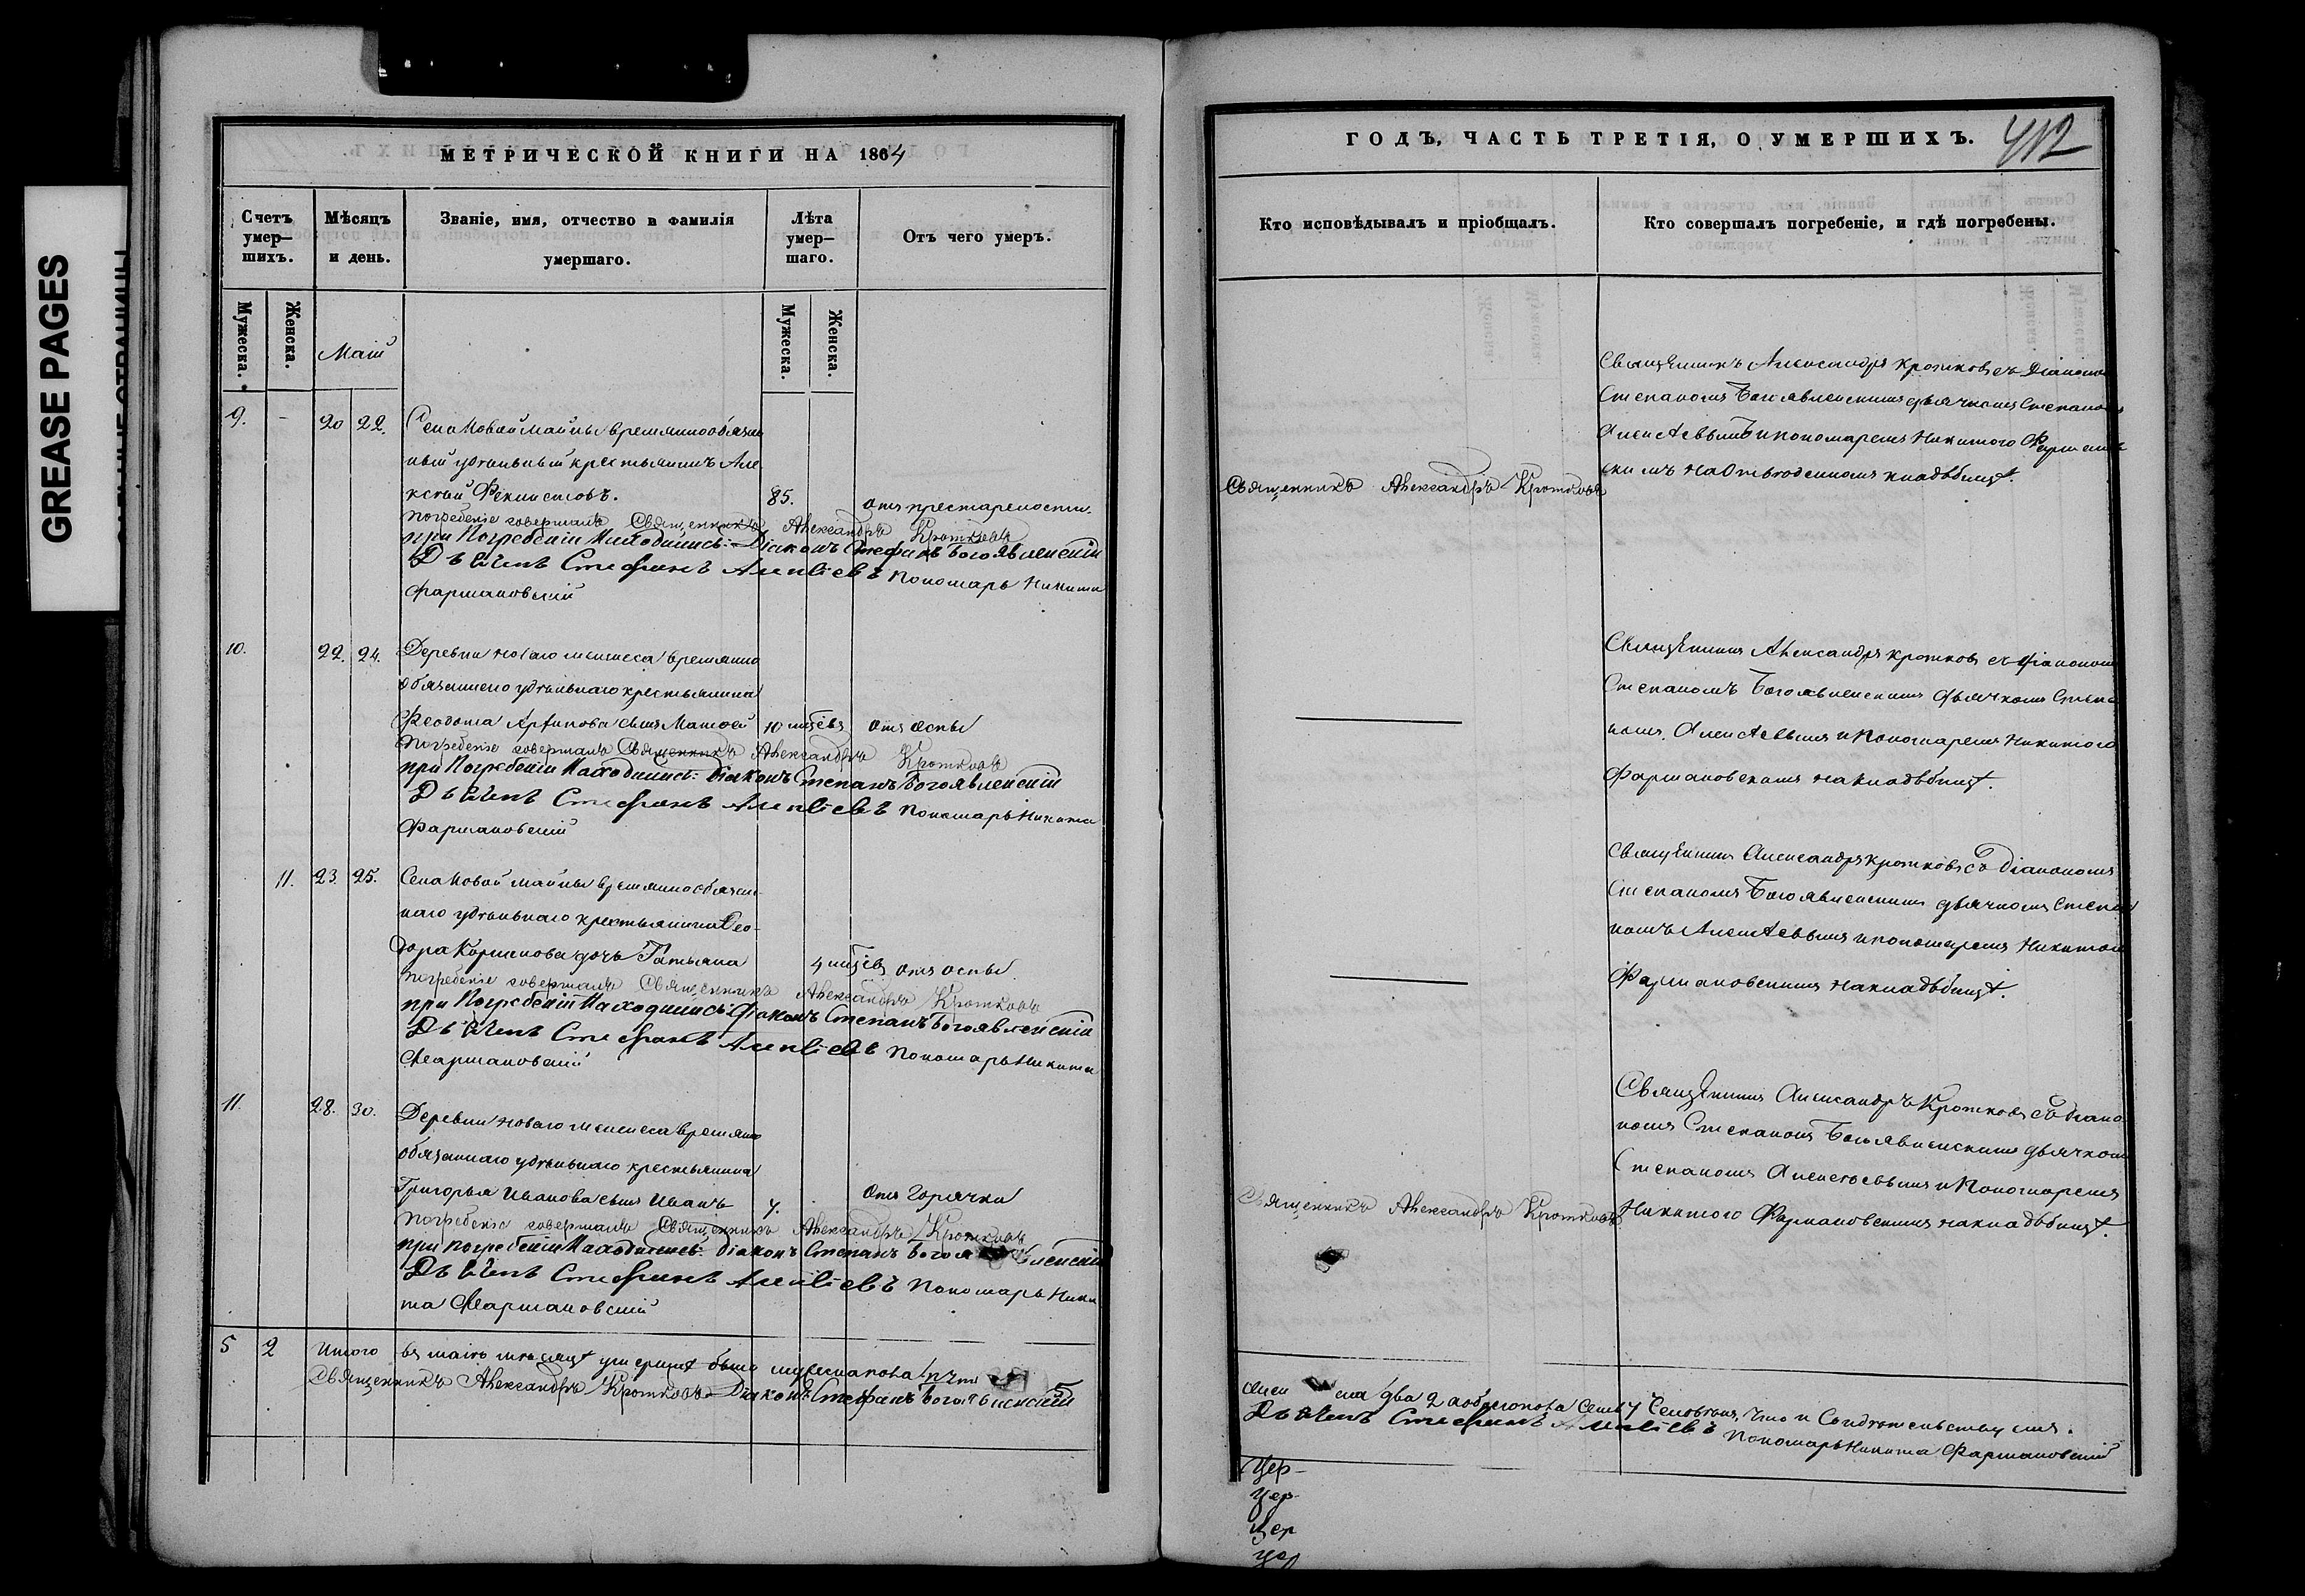 GREASE PAGES
МЕТРИЧЕСКОЙ КНИГИ НА 1864
Счетъ умер-шихъ.
Мѣсяцъ и день.
Званіе, имя, отчество и фамилія умершаго.
Лѣта умер-шаго.
Отъ чего умеръ.
Мужеска.
Женска.
Маій
Мужеска.
Женска.
9. - 20 22. Села Новой Майны временнообязан
ный удѣльный крестьянинъ Але
ксѣй
85. отъ престарелости.
Погребеніе совершалъ Священникъ Александръ Кротковъ
при Погребеніи Находились: Діаконъ Стефанъ Богоявленскій
Дьячекъ Стефанъ Алексіевъ Пономарь Никита
Фармаковскій
10. 22. 24. Деревни Новаго временно
обязаннаго удѣльнаго крестьянина
Феодота Архипова сынъ Матвей 10 отъ оспы
Погребеніе совершалъ Священникъ Александръ Кротковъ
при Погребеніи Находились: Діаконъ Степанъ Богоявленскій
Дьячекъ Стефанъ Алексіевъ Пономарь Никита
Фармаковскій
11. 23. 25. Села Новой Майны временнообязан-
наго удѣльнаго крестьянина Фео-
дора дочь Татьяна
4 отъ оспы
Погребеніе совершалъ Священникъ Александръ Кротковъ
при Погребеніи Находились: Діаконъ Степанъ Богоявленскій
Дьячекъ Стефанъ Алексіевъ Пономарь Никита
Фармаковскій
11. 28. 30. Деревни Новаго временно
обязаннаго удѣльнаго крестьянина
Григорья Иванова сынъ Иванъ отъ горячки
Погребеніе совершалъ Священникъ Александръ Кротковъ
при погребеніи Находились: Діаконъ Степанъ Богоявленскій
Дьячекъ Стефанъ Алексіевъ Пономарь Ники
та Фармаковскій
5 2 Итого въ маіѣ месяцѣ умершихъ было мужеска пола пять 5
Священникъ Александръ Кротковъ Діаконъ Стефанъ Богоявленскій
ГОДЪ, ЧАСТЬ ТРЕТІЯ, О УМЕРШИХЪ.
412
Кто исповѣдывалъ и пріобщалъ.
Кто совершалъ погребеніе, и гдѣ погребены.
Священникъ Александръ Кротковъ съ Діакономъ
Степаномъ Богоявленскимъ дьячкомъ Степаномъ
Алексѣевымъ и пономаремъ Никитою Фармаков
скимъ на отведенномъ кладбищѣ.
Священникъ Александръ Кротковъ
Священникъ Александръ Кротковъ съ діакономъ
Степаномъ Богоявленскимъ дьячкомъ Степа
номъ Алексѣевымъ и Пономаремъ Никитою
Фармаковскимъ на кладбищѣ.
Священникъ Александръ Кротковъ съ діакономъ
Степаномъ Богоявленскимъ дьячкомъ Степа
номъ Алексѣевымъ и пономаремъ Никитою
Фармаковскимъ на кладбищѣ.
Священникъ Александръ Кротковъ съ діако
номъ Степаномъ Богоявленскимъ дьячкомъ
Степаномъ Алексѣевымъ и Пономаремъ
Никитою Фармаковскимъ на кладбищѣ.
Священникъ Александръ Кротковъ
два 2 а обоего пола семь 7 человѣкъ, что и свидѣтельствуемъ.
Дьячекъ Стефанъ Алексіевъ
Пономарь Никита Фармаковскій
Цер-
Цер-
Цер